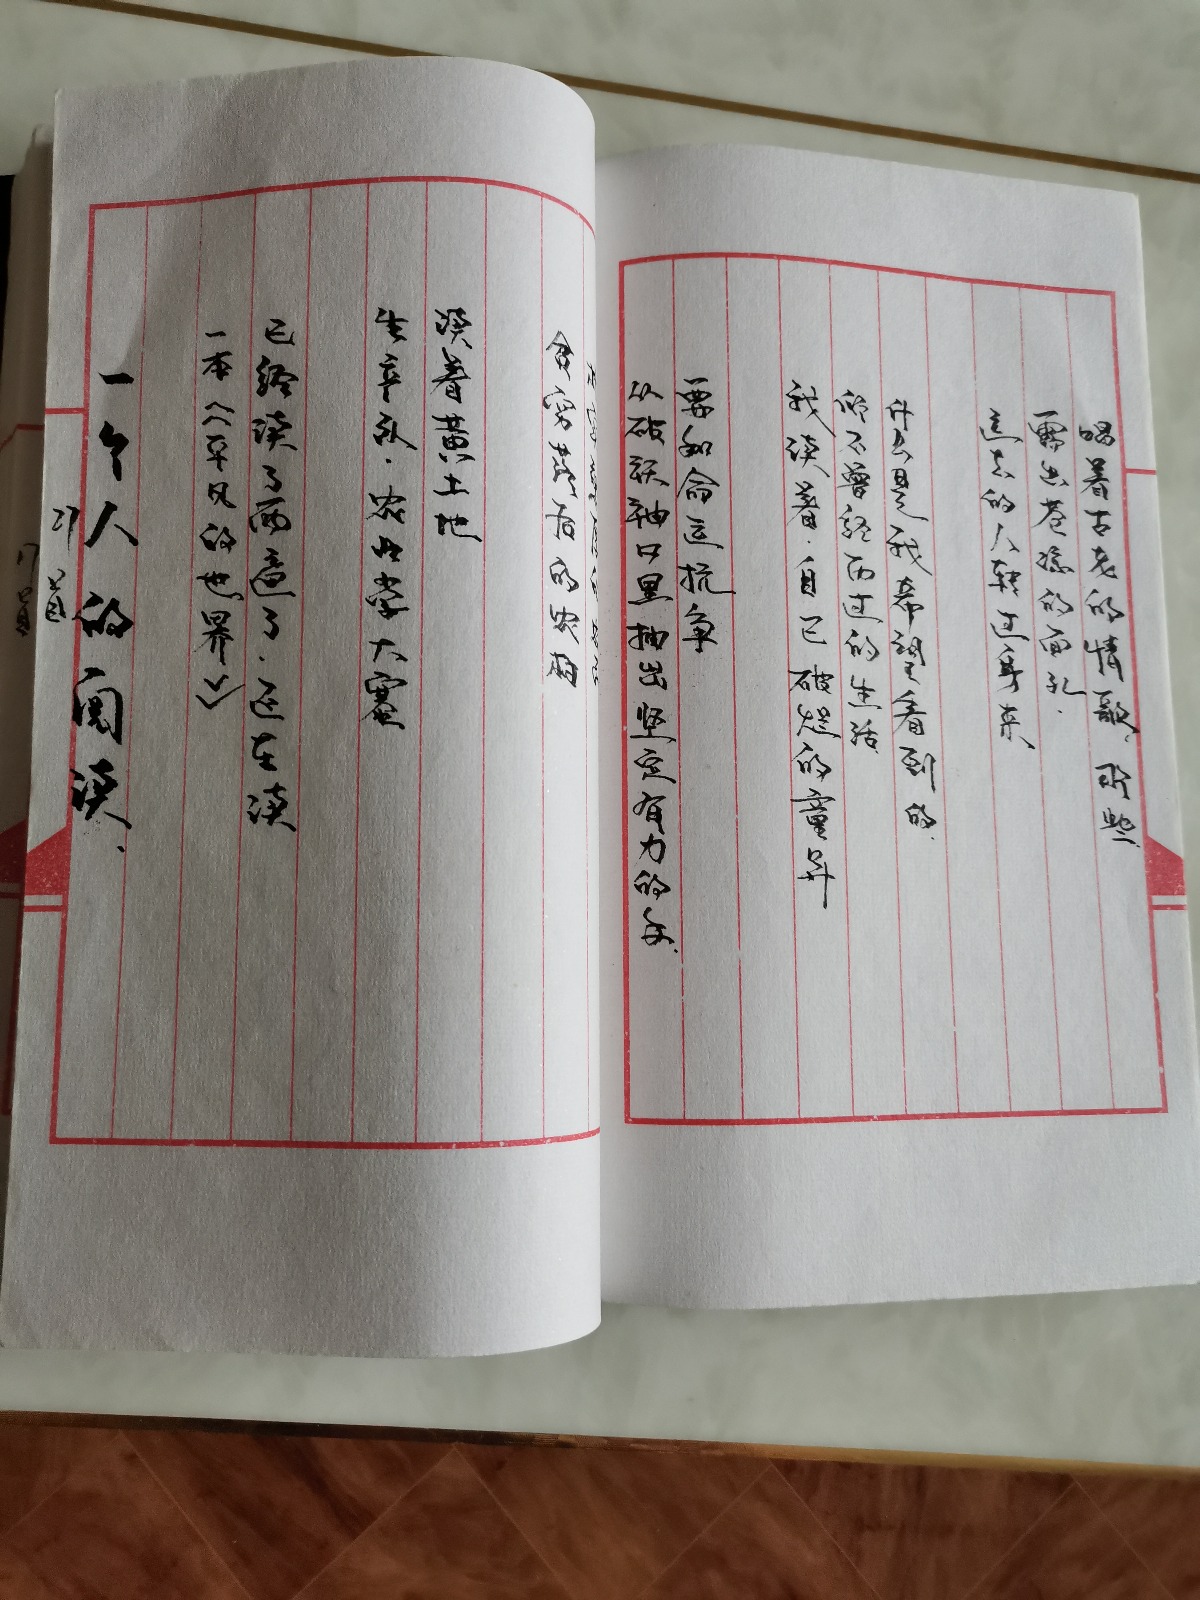 一个人的阅读、
一本《平凡的世界》
已经读了两遍了.还在读
生产队.农业学大寨
读着黄土地
贫穷落后的农村
从破袄袖口里抽出坚定有力的手.
要和命运抗争
我读着.自己破烂的童年
所不曾经历过的生活
什么是我希望看到的.
远去的人转过身来、
露出苍凉的面孔.
唱着古老的情歌,那些